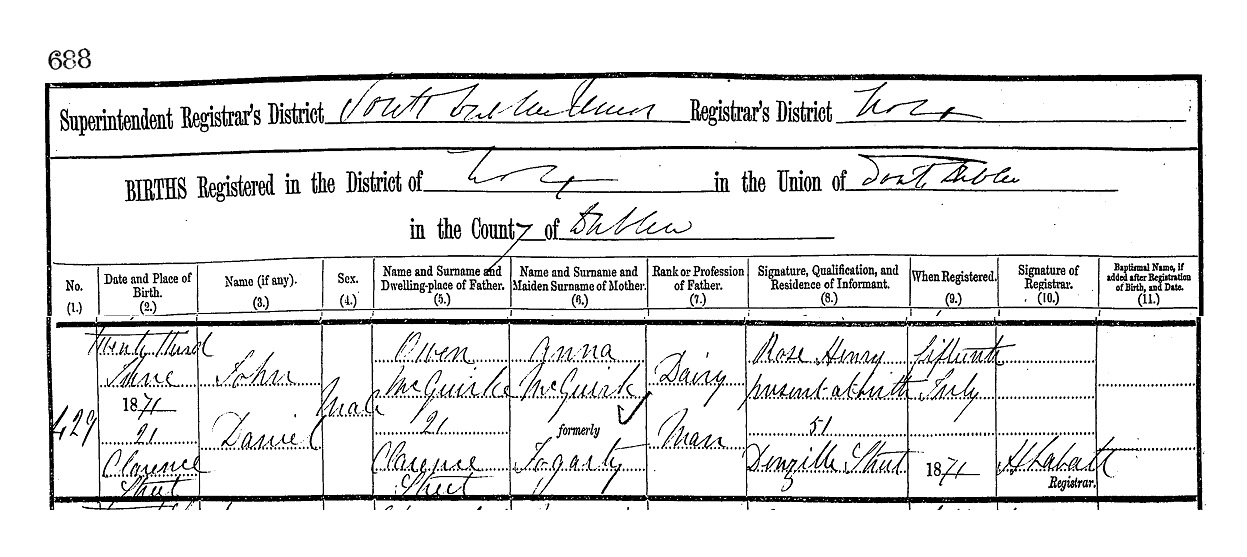 688
Superintendent Registrar's District South Dublin Union Registrar's District No 2
BIRTHS Registered in the District of No 2 in the Union of South Dublin
in the County of Dublin
No. (1.)
Date and Place of Birth. (2.)
Name (if any). (3.)
Sex. (4.)
Name and Surname and Dwelling-place of Father. (5.)
Name and Surname and Maiden Surname of Mother. (6.)
Rank or Profession of Father. (7.)
Signature, Qualification, and Residence of Informant. (8.)
When Registered. (9.)
Signature of Registrar. (10.)
Baptismal Name, if added after Registration of Birth, and Date. (11.)
429
Twenty third
June
1871
21
Clarence
Street
John
Daniel
Male
Owen
McGuirke
21
Clarence
Street
Anna
McGuirk
formerly
Fogarty
Dairy
Man
Rose Henry
present at birth
51
Denzille Street
Fifteenth
July
1871
H Labatt
Registrar.